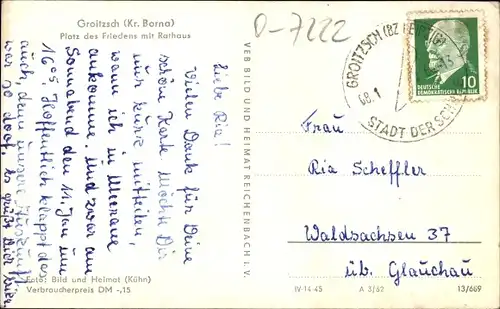 Groitzsch (Kr. Borna)
Platz des Friedens mit Rathaus
D-7222
Liebe Ria!
Vielen Dank für Deine
schöne Karte. Möchte Dir
nur kurz mitteilen,
wann ich in Meerane
ankomme. Und zwar am
Sonnabend den 11. Jan um
16 05. Hoffentlich klappt das
auch, denn unsere
war so doof. Es grüßt Dich
Foto: Bild und Heimat (Kühn)
Verbraucherpreis DM -,15
VEB BILD UND HEIMAT REICHENBACH i. V.
GROITZSCH (BZ LEIPZIG)
08.1
STADT DER SCHUH
10
DEUTSCHE
DEMOKRATISCHE REPUBLIK
Frau
Ria Scheffler
Waldsachsen 37
üb. Glauchau
IV-14-45 A 3/62 13/689